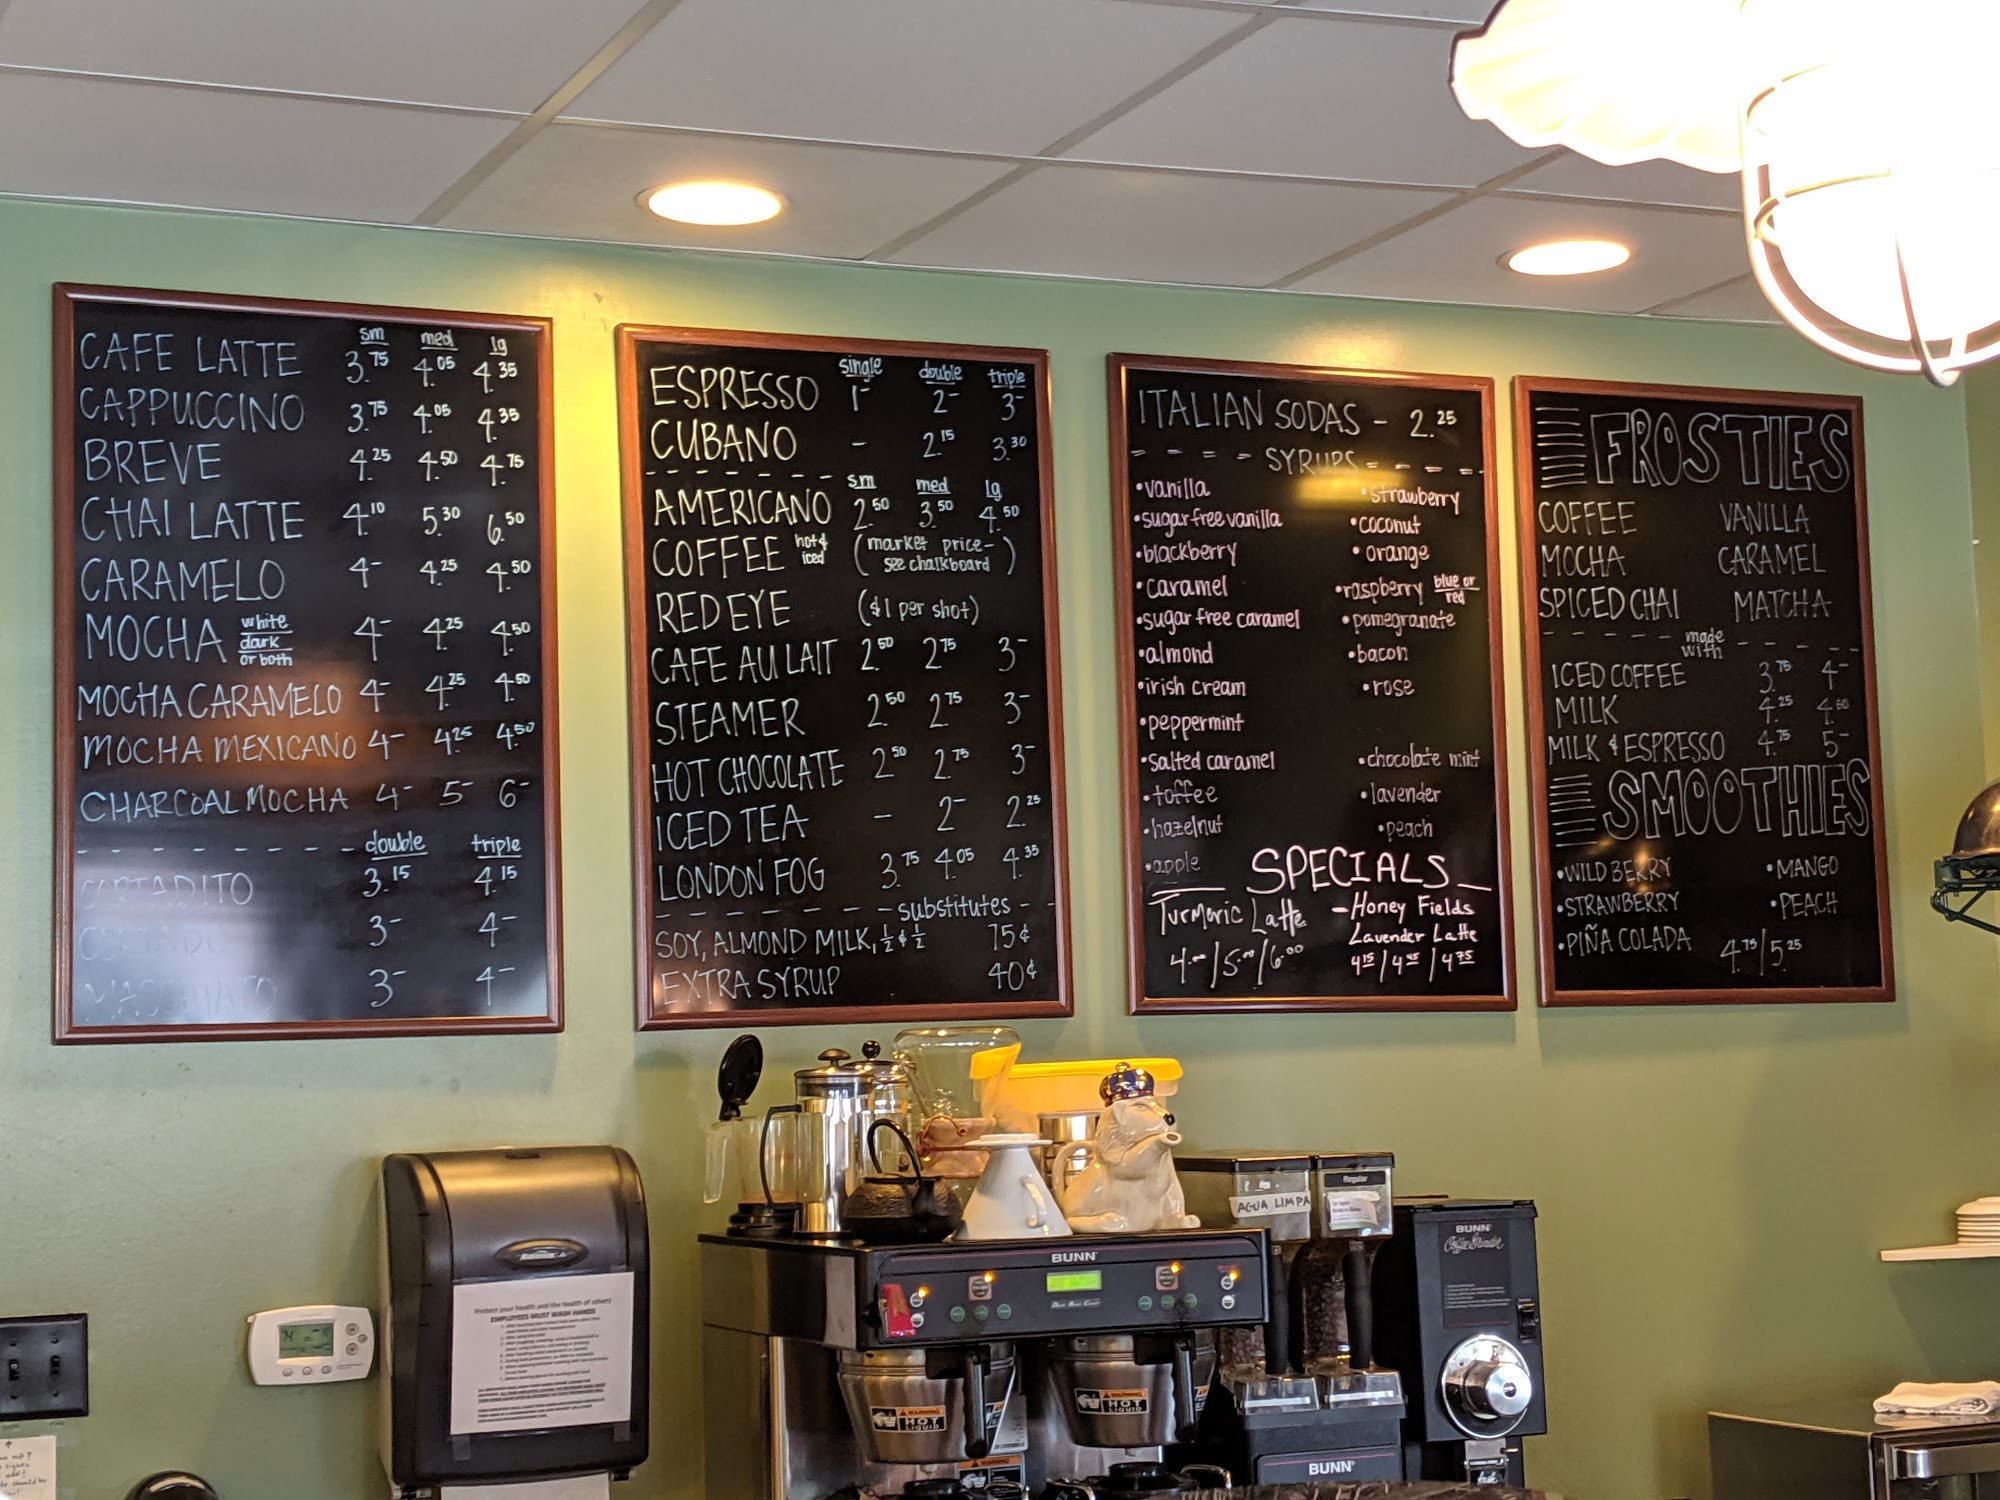 sm med lg
CAFE LATTE 3.75 4.05 4.35
CAPPUCCINO 3.75 4.05 4.35
BREVE 4.25 4.50 4.75
CHAI LATTE 4.10 5.30 6.50
CARAMELO 4- 4.25 4.50
MOCHA white dark or both 4- 4.25 4.50
MOCHA CARAMELO 4- 4.25 4.50
MOCHA MEXICANO 4- 4.25 4.50
CHARCOAL MOCHA 4- 5- 6-
double triple
CORTADITO 3.15 4.15
CORTADO 3- 4-
MACCHIATO 3- 4-
single double triple
ESPRESSO 1- 2- 3-
CUBANO - 2.15 3.30
sm med lg
AMERICANO 2.50 3.50 4.50
COFFEE hot & iced (market price- see chalkboard)
RED EYE ($1 per shot)
CAFE AU LAIT 2.50 2.75 3-
STEAMER 2.50 2.75 3-
HOT CHOCOLATE 2.50 2.75 3-
ICED TEA - 2- 2.25
LONDON FOG 3.75 4.05 4.35
substitutes
SOY, ALMOND MILK, ½ & ½ 75¢
EXTRA SYRUP 40¢
ITALIAN SODAS - 2.25
SYRUPS
•vanilla •strawberry
•sugar free vanilla •coconut
•blackberry •orange
•caramel •raspberry blue or red
•sugar free caramel •pomegranate
•almond •bacon
•irish cream •rose
•peppermint
•salted caramel •chocolate mint
•toffee •lavender
•hazelnut •peach
•apple
SPECIALS
Turmeric Latte
4.00/5.00/6.00
-Honey Fields
Lavender Latte
4.15/4.45/4.75
FROSTIES
COFFEE VANILLA
MOCHA CARAMEL
SPICED CHAI MATCHA
made with
ICED COFFEE 3.75 4-
MILK 4.25 4.50
MILK & ESPRESSO 4.75 5-
SMOOTHIES
•WILD BERRY •MANGO
•STRAWBERRY •PEACH
•PIÑA COLADA 4.75/5.25
AGUA LIMPA
Regular
BUNN
BUNN
Coffee Grinder
Protect your health and the health of others!
EMPLOYEES MUST WASH HANDS
74
WARNING
HOT
LIQUID
WARNING
HOT
LIQUID
WARNING
BUNN